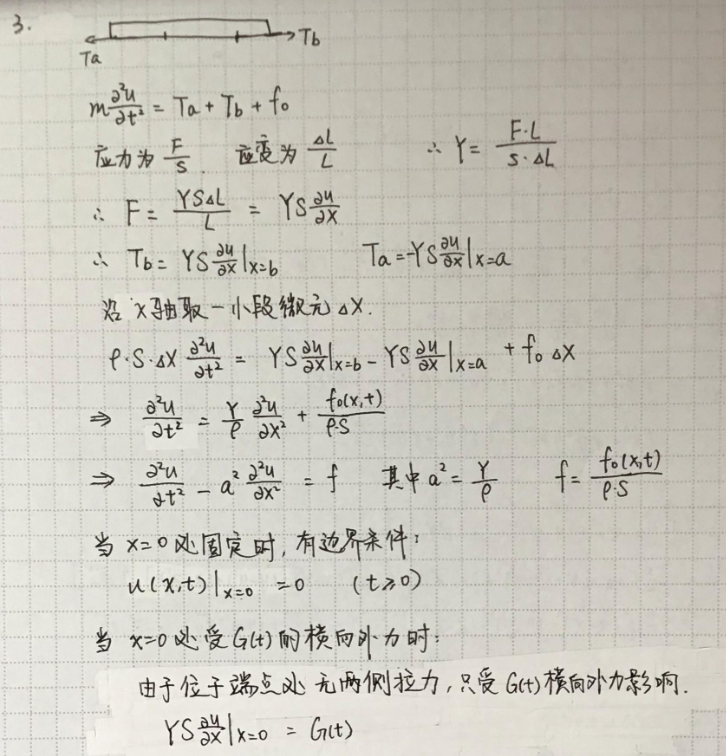 3.
Ta Tb
m∂²u/∂t² = Ta + Tb + f₀
应力为 F/S. 应变为 ΔL/L ∴ Y = F·L/S·ΔL
∴ F = YSΔL/L = YS ∂u/∂x
∴ Tb = YS ∂u/∂x|x=b Ta = -YS ∂u/∂x|x=a
沿x轴取一小段微元Δx.
ρ·S·Δx ∂²u/∂t² = YS ∂u/∂x|x=b - YS ∂u/∂x|x=a + f₀Δx
⇒ ∂²u/∂t² = Y/ρ ∂²u/∂x² + f₀(x,t)/ρ·S
⇒ ∂²u/∂t² - a² ∂²u/∂x² = f 其中a² = Y/ρ f = f₀(x,t)/ρ·S
当x=0处固定时,有边界条件:
u(x,t)|x=0 = 0 (t≥0)
当x=0处受G(t)的横向外力时:
由于位于端点处无两侧拉力,只受G(t)横向外力影响.
YS ∂u/∂x|x=0 = G(t)